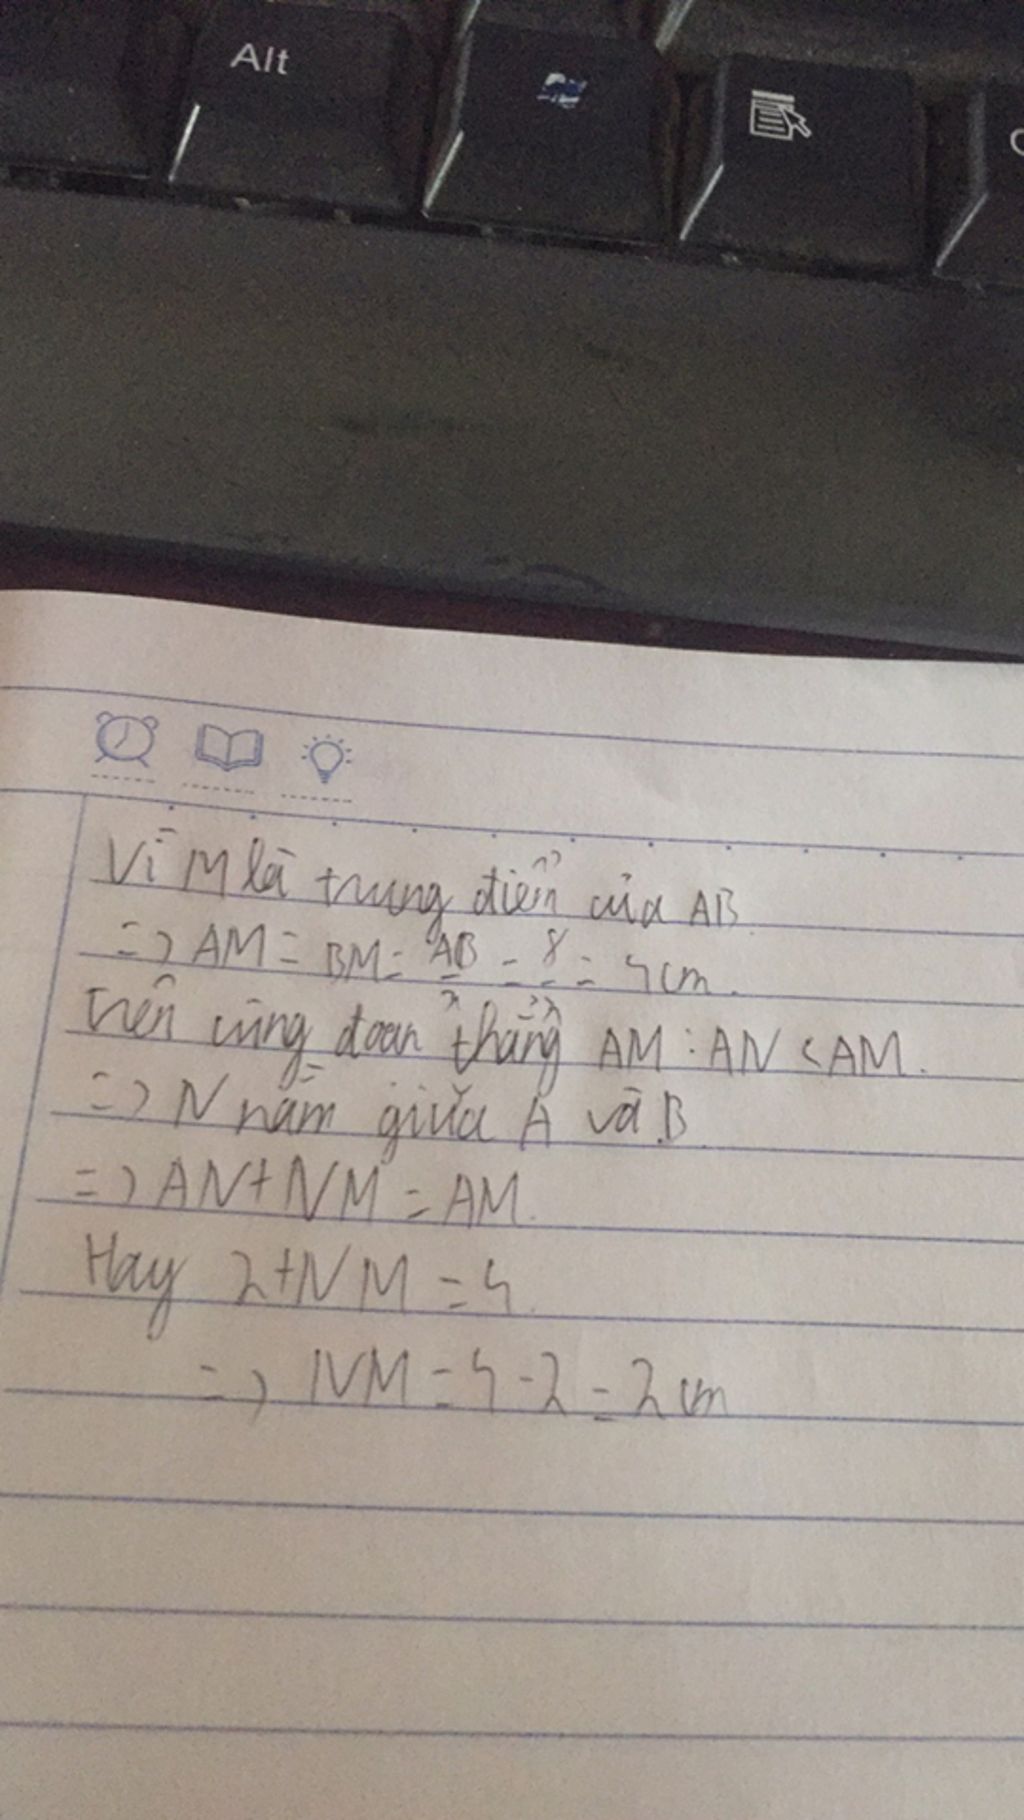 Alt
Vì M là trung điểm của AB
=> AM = BM = AB/2 = 8/2 = 4cm.
Trên cùng đoạn thẳng AM : AN < AM.
=> N nằm giữa A và B
=> AN + NM = AM.
Hay 2 + NM = 4.
=> NM = 4 - 2 = 2cm